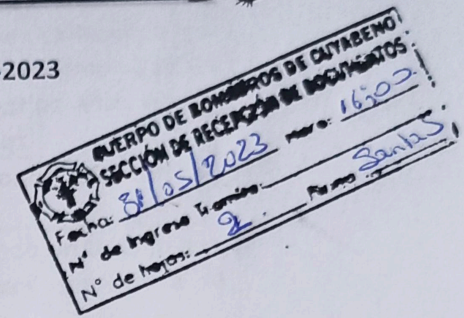 2023
CUERPO DE BOMBEROS DE CUYABENO
SECCIÓN DE RECEPCIÓN DE DOCUMENTOS
Fecha: 31/05/2023 Hora: 16:00
N° de Ingreso Tramite:
N° de hojas: 2 Firma: Santos